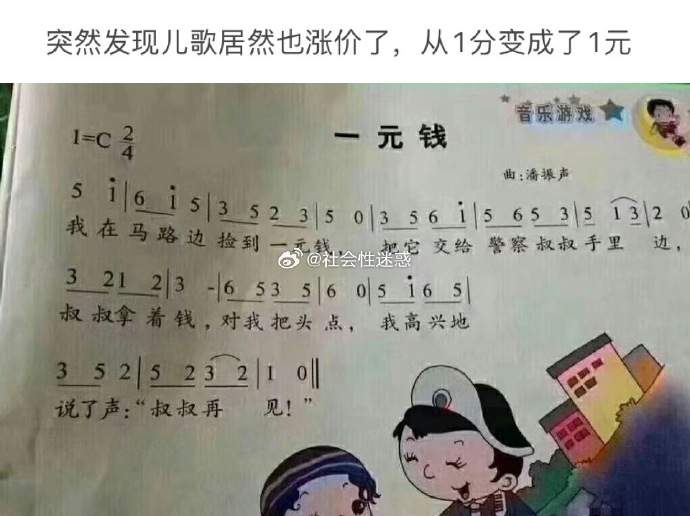 突然发现儿歌居然也涨价了，从1分变成了1元
音乐游戏
1=C 2/4
一元钱
曲:潘振声
5 i|6 i 5|3 5 2 3|5 0|3 5 6 i|5 6 5 3|5 1 3|2 0
我在马路边捡到一元钱，把它交给警察叔叔手里边，
@社会性迷惑
3 2 1 2|3 -|6 5 3 5|6 0|5 i 6 5|
叔叔拿着钱，对我把头点，我高兴地
3 5 2|5 2 3 2|1 0‖
说了声:“叔叔再见!”